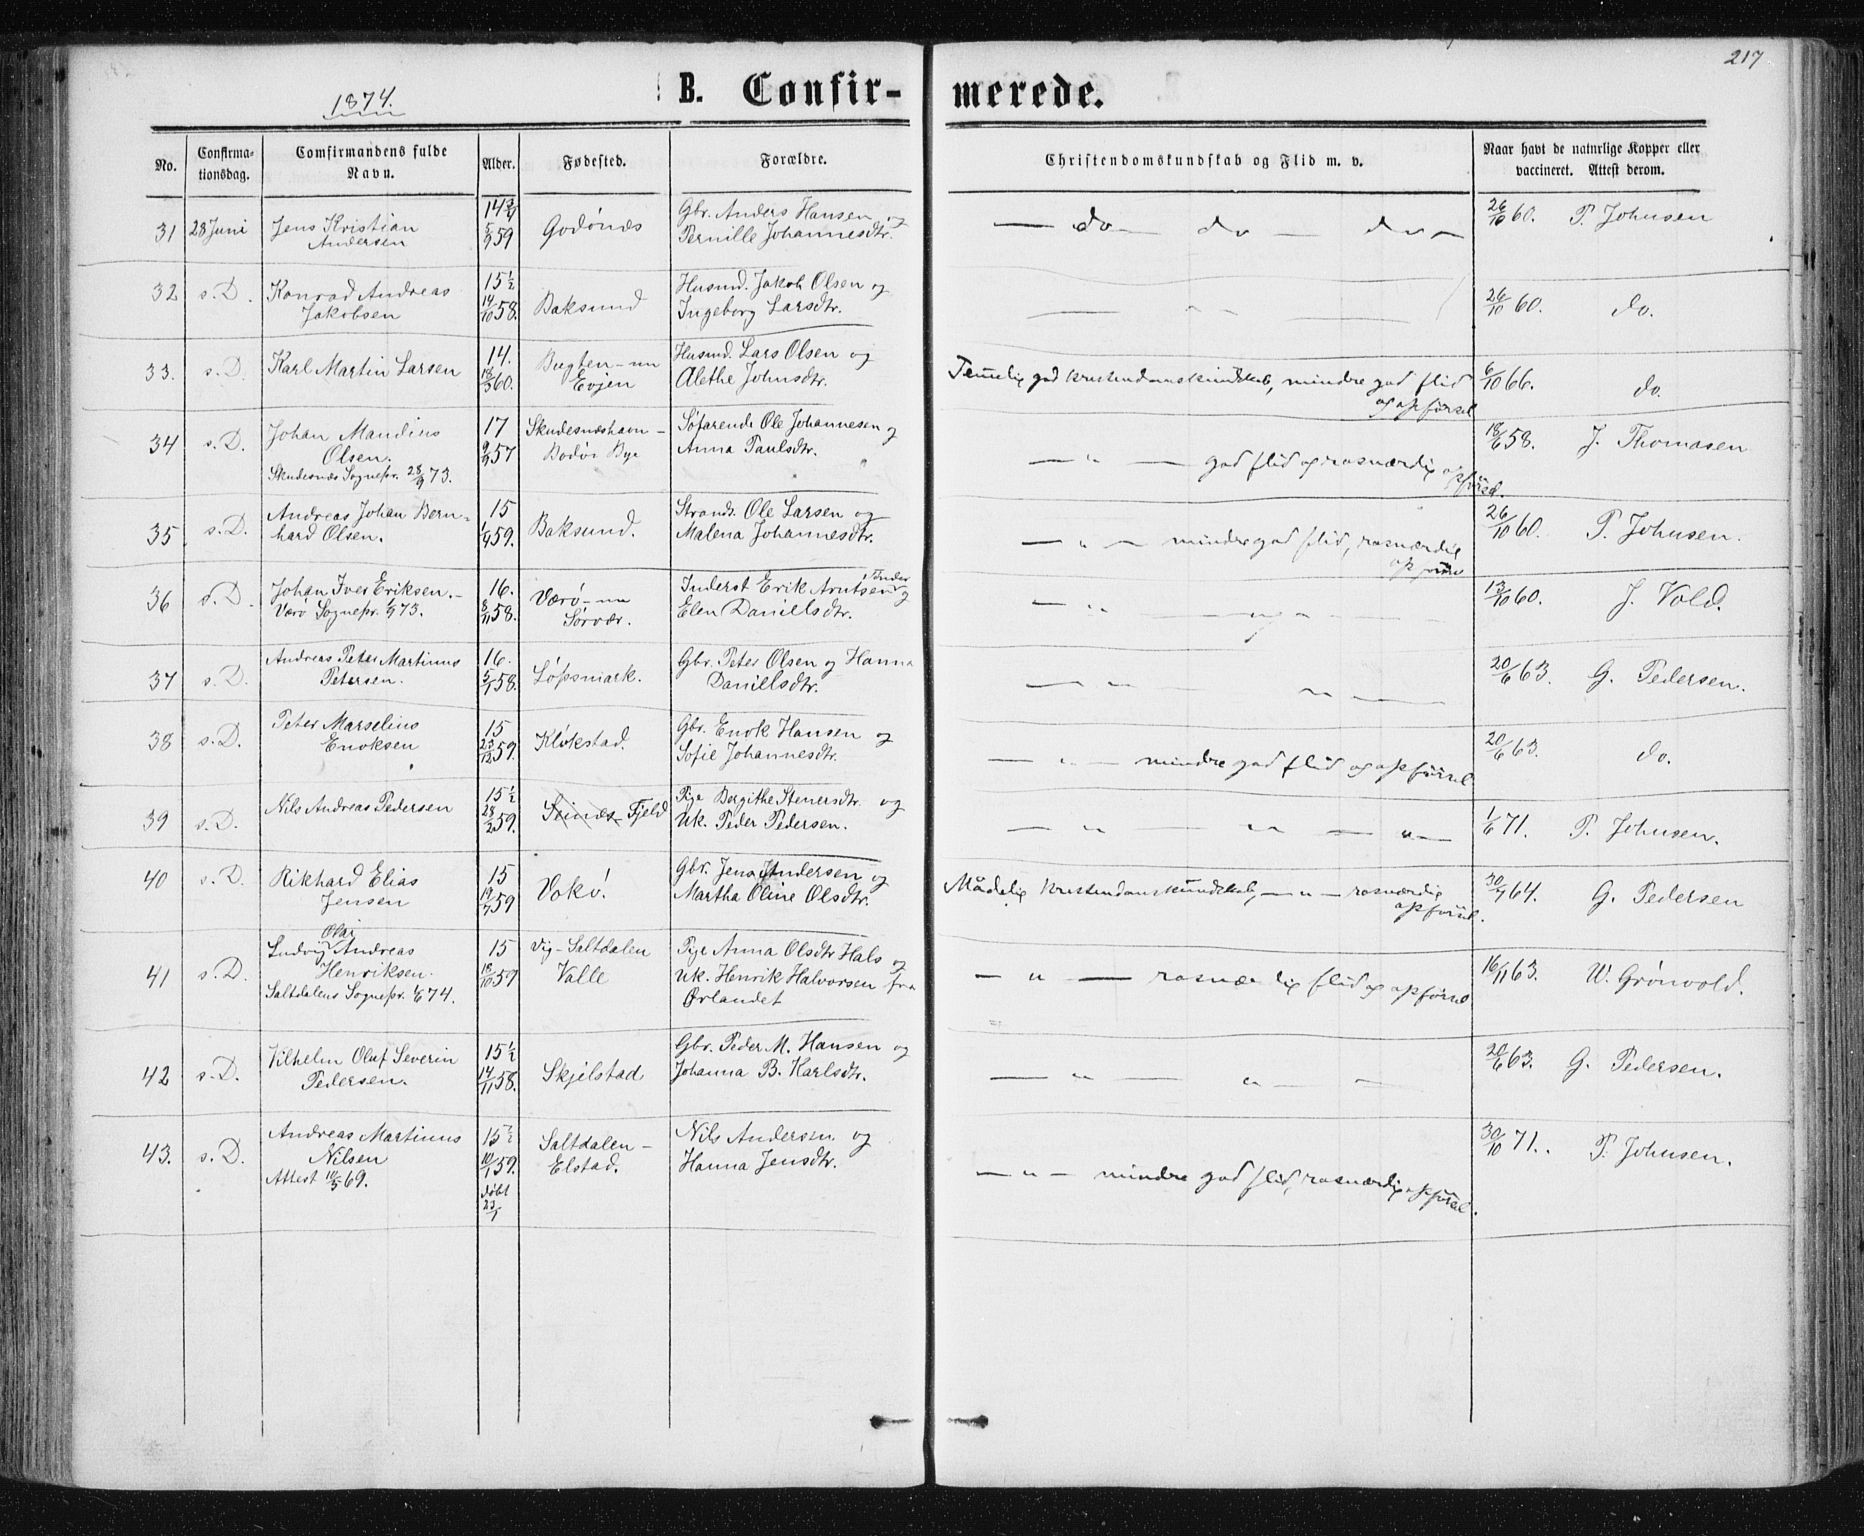 217
1874.
B. Confirmerede.
No. Confirmationsdag. Comfirmandens fulde Navn. Alder. Fødested. Forældre. Christendomskundskab og Flid m. v. Naar havt de naturlige Kopper eller vaccineret. Attest derom.
31 28 Juni Jens Kristian 14 3/4 Godønes Gbr. Anders Hansen og — do — do — do — 26/10 60. P. Johnsen
Andersen 5/9 59 Pernille Johannesdtr.
32 s. D. Konrad Andreas 15 1/2 Baksund Husmd. Jakob Olsen og 26/10 60. do.
Jakobsen 14/10 58. Ingeborg Larsdtr.
33. s. D. Karl Martin Larsen 14. Bugten - nu Husmd. Lars Olsen og Temelig god kristendomskundskab, mindre god flid 6/10 66. do.
18/3 60. Evjen Alethe Johnsdtr. og opførsel
34 s. D. Johan Mandius 17 Skudesnæshavn - Søfarende Ole Johannesen og 18/6 58. J. Thomasen
Olsen. 9/9 57 Bodø Bye Anna Paulsdtr. — " — god flid og rosværdig opførsel.
Skudesnæs Sognepr. 28/9 73.
35 s. D. Andreas Johan Bern- 15 Baksund. Strands. Ole Larsen og 26/10 60. P. Johnsen.
hard Olsen. 1/9 59. Malena Johannesdtr. — " — mindre god flid, rosværdig
opførsel
36 s. D. Johan Iver Eriksen. - 16. Værø - nu Inderst Erik Arntsen og 13/10 60. J. Vold.
Værø Sognepr. 73. 8/11 58. Sørvær. Elen Daniels­dtr. — " —
37 s. D. Andreas Peter Martinus 16. Løpsmark. Gbr. Peter Olsen og Hanna 20/6 63. G. Pedersen.
Petersen. 5/1 58. Danielsdtr. — " — " —
38 s. D. Peter Marselius 15 Kløkstad. Gbr. Enok Hansen og 20/6 63. do.
Enoksen 23/12 59. Sofie Johannesdtr. — " — mindre god flid og opførsel
39 s. D. Nils Andreas Pedersen 15 1/2 Fjeld Pige Bergithe Stenersdtr. og 1/6 71. P. Johnsen.
28/2 59. Uk. Peder Pedersen. — " — " — " —
40 s. D. Rikhard Elias 15 Vokø. Gbr. Jens Andersen og Mådelig kristendomskundskab, — " — rosværdig 30/7 64. G. Pedersen
Jensen 19/7 59 Martha Oline Olsdtr. opførsel.
Olai
41 s. D. Ludvig Andreas 15 Vig - Saltdalen Pige Anna Olsdtr Hals og 16/11 63. W. Grönvold.
Henriksen. 18/10 59 Valle Uk. Henrik Halvorsen fra — " — rosværdig flid og opførsel
Saltdalens Sognepr. 74. Ørlandet
42 s. D. Vilhelm Oluf Severin 15 1/2 Skjelstad Gbr. Peder M. Hansen og 20/6 63. G. Pedersen.
Pedersen. 14/11 58. Johanna B. Karlsdtr. — " — " —
43. s. D. Andreas Martinus 15 1/2 Saltdalen - Nils Andersen og 30/10 71. P. Johnsen.
Nilsen 10/1 59. Elstad. Hanna Jensdtr. — " — mindre god flid, rosværdig opførsel.
Attest 10/5 69. døbt
23/1